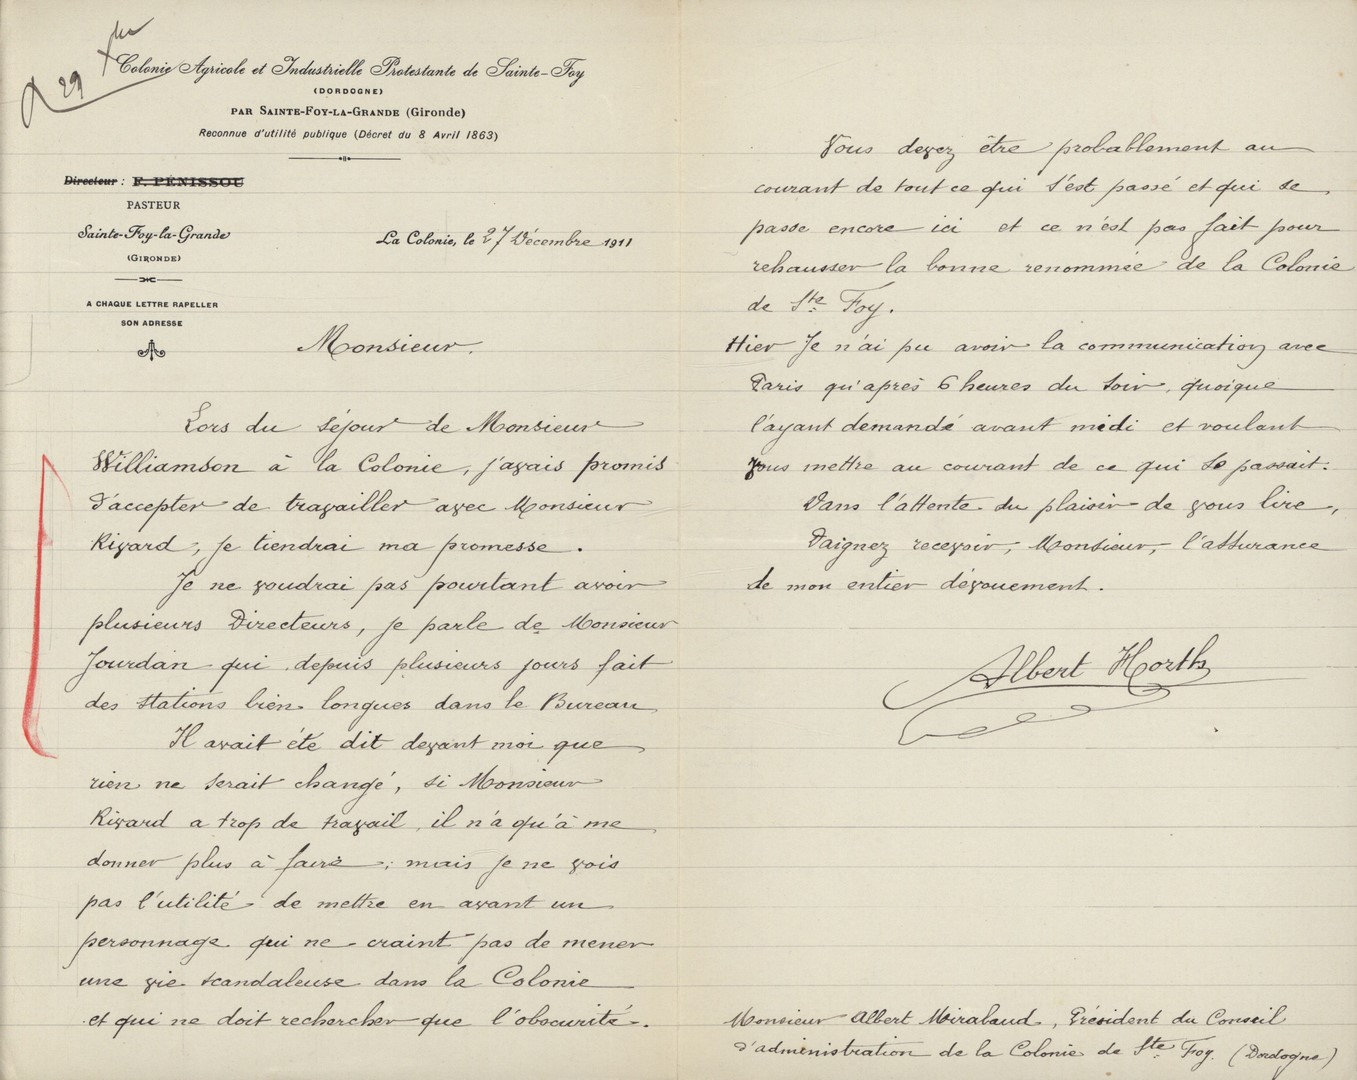 R 29 Xbre
Colonie Agricole et Industrielle Protestante de Sainte-Foy
(DORDOGNE)
PAR SAINTE-FOY-LA-GRANDE (Gironde)
Reconnue d'utilité publique (Décret du 8 Avril 1863)
Directeur : F. PÉNISSOU
PASTEUR
Sainte-Foy-la-Grande
(GIRONDE)
La Colonie, le 27 Décembre 1911
A CHAQUE LETTRE RAPELLER
SON ADRESSE
Monsieur.
Lors du séjour de Monsieur
Williamson à la Colonie, j'avais promis
d'accepter de travailler avec Monsieur
Rivard, je tiendrai ma promesse.
Je ne voudrai pas pourtant avoir
plusieurs Directeurs, je parle de Monsieur
Jourdan qui depuis plusieurs jours fait
des stations bien longues dans le Bureau
Il avait été dit devant moi que
rien ne serait changé, si Monsieur
Rivard a trop de travail il n'a qu'à me
donner plus à faire; mais je ne vois
pas l'utilité de mettre en avant un
personnage qui ne craint pas de mener
une vie scandaleuse dans la Colonie
et qui ne doit rechercher que l'obscurité.
Vous devez être probablement au
courant de tout ce qui s'est passé et qui se
passe encore ici et ce n'est pas fait pour
rehausser la bonne renommée de la Colonie
de Ste Foy.
Hier Je n'ai pu avoir la communication avec
Paris qu'après 6 heures du soir, quoique
l'ayant demandé avant midi et voulant
vous mettre au courant de ce qui se passait.
Dans l'attente du plaisir de vous lire,
Daignez recevoir, Monsieur, l'assurance
de mon entier dévouement.
Albert Horth
Monsieur Albert Mirabaud, Président du Conseil
d'administration de la Colonie de Ste Foy. (Dordogne)